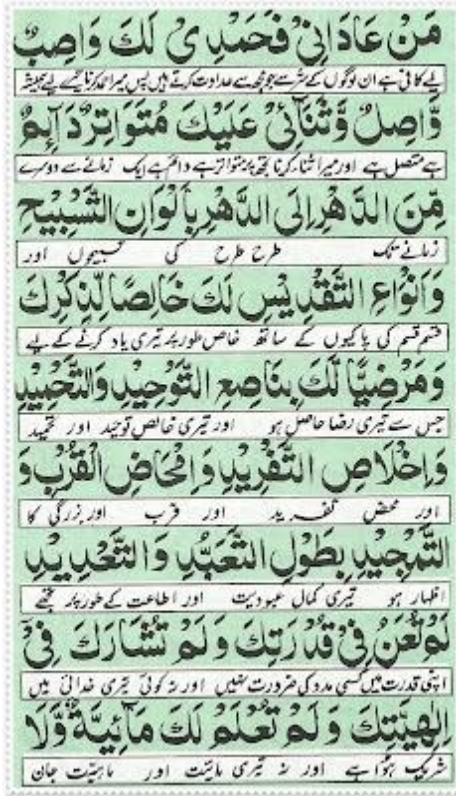 مَنْ عَادَانِیْ فَحَمْدِیْ لَكَ وَاصِبٌ
لیے کافی ہے ان لوگوں کے شر سے جو مجھ سے عداوت کرتے ہیں پس میرا حمد کرنا تیرے لیے ہمیشہ
وَّاصِلٌ وَّثَنَآئِیْ عَلَیْكَ مُتَوَاتِرٌ دَآئِمٌ
ہے متصل ہے اور میرا ثناء کرنا تجھ پر متواتر ہے دائم ہے ایک زمانے سے دوسرے
مِّنَ الدَّهْرِ اِلَی الدَّهْرِ بِاَلْوَانِ التَّسْبِیْحِ
زمانے تک طرح طرح کی تسبیحوں اور
وَاَنْوَاعِ التَّقْدِیْسِ لَكَ خَالِصًا لِّذِكْرِكَ
قسم قسم کی پاکیوں کے ساتھ خاص طور پر تیری یاد کرنے کے لیے
وَمَرْضِیًّا لَكَ بِنَاصِعِ التَّوْحِیْدِ وَالتَّحْمِیْدِ
جس سے تیری رضا حاصل ہو اور تیری خالص توحید اور تحمید
وَاِخْلَاصِ التَّفْرِیْدِ وَاِمْحَاضِ الْقُرْبِ وَ
اور محض تفرید اور قرب اور بزرگی کا
التَّمْجِیْدِ بِطُوْلِ التَّعَبُّدِ وَالتَّعْدِیْدِ
اظہار ہو تیری کمال عبودیت اور اطاعت کے طور پر تجھے
لَمْ تُعَنْ فِیْ قُدْرَتِكَ وَلَمْ تُشَارَكْ فِیْ
اپنی قدرت میں کسی مدد کی ضرورت نہیں اور نہ کوئی تیری خدائی میں
اِلٰهِیَّتِكَ وَلَمْ تُعْلَمْ لَكَ مَآئِیَّةٌ وَّلَا
شریک ہوا ہے اور نہ تیری مائیت اور ماہیت جان